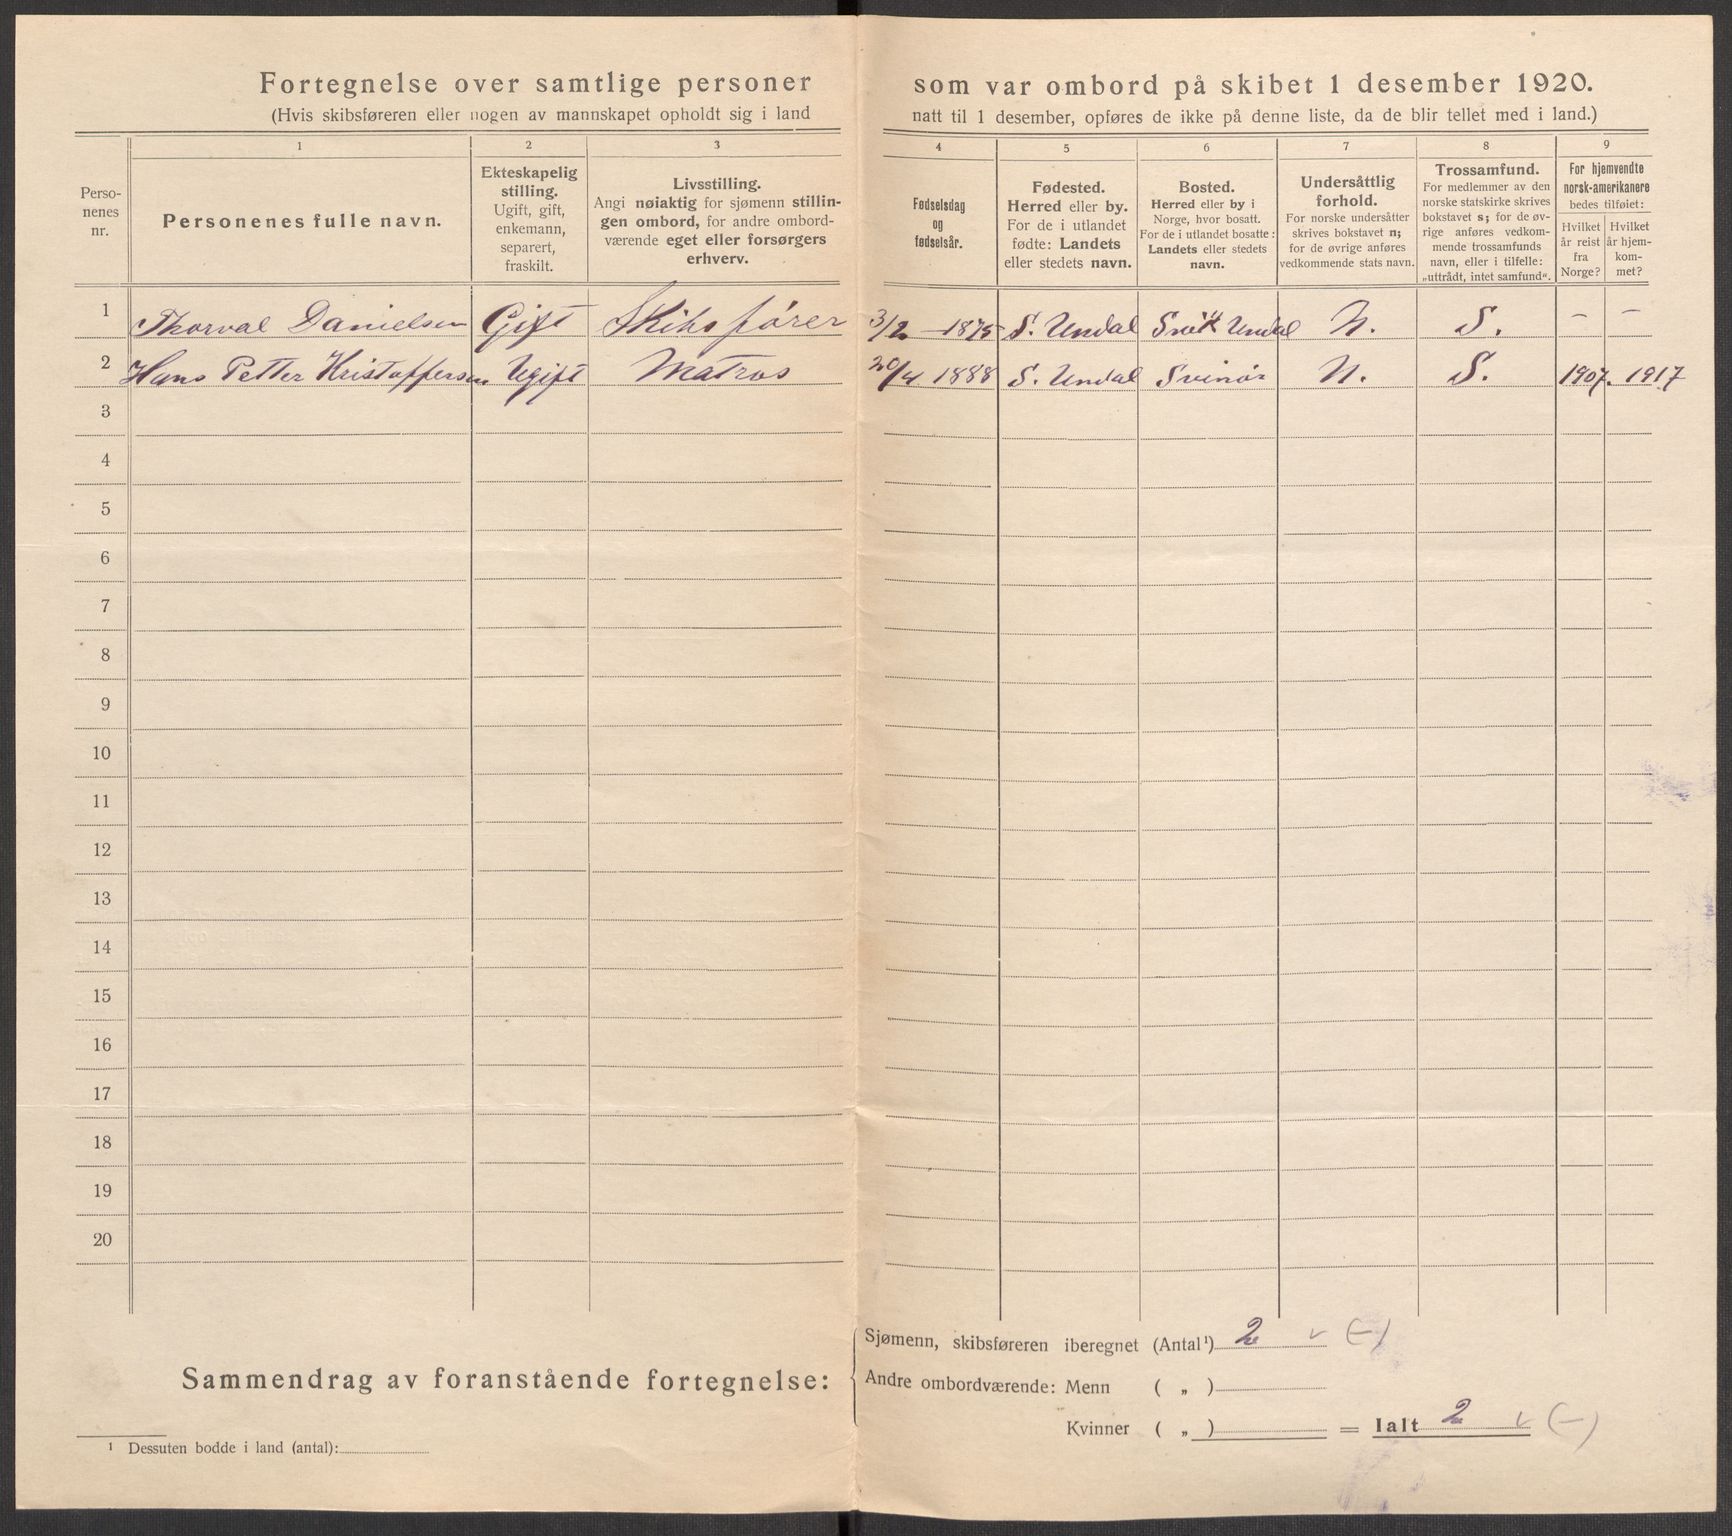 Fortegnelse over samtlige personer som var ombord på skibet 1 desember 1920.
(Hvis skibsføreren eller nogen av mannskapet opholdt sig i land natt til 1 desember, opføres de ikke på denne liste, da de blir tellet med i land.)
1 2 3 4 5 6 7 8 9
Perso-
nenes
nr.
Personenes fulle navn.
Ekteskapelig
stilling.
Ugift, gift,
enkemann,
separert,
fraskilt.
Livsstilling.
Angi nøiaktig for sjømenn stillin-
gen ombord, for andre ombord-
værende eget eller forsørgers
erhverv.
Fødselsdag
og
fødselsår.
Fødested.
Herred eller by.
For de i utlandet
fødte: Landets
eller stedets navn.
Bosted.
Herred eller by i
Norge, hvor bosatt.
For de i utlandet bosatte:
Landets eller stedets
navn.
Undersåttlig
forhold.
For norske undersåtter
skrives bokstavet n;
for de øvrige anføres
vedkommende stats navn.
Trossamfund.
For medlemmer av den
norske statskirke skrives
bokstavet s; for de øv-
rige anføres vedkom-
mende trossamfunds
navn, eller i tilfelle:
„uttrådt, intet samfund“.
For hjemvendte
norsk-amerikanere
bedes tilføiet:
Hvilket
år reist
fra
Norge?
Hvilket
år hjem-
kom-
met?
1 Thorval Danielsen Gift Skibsfører 3/2 – 1875 S. Undal Undal N. S. – –
2 Hans Petter Kristoffersen Ugift Matros 20/4 1888 S. Undal Svinör N. S. 1907. 1917
3
4
5
6
7
8
9
10
11
12
13
14
15
16
17
18
19
20
Sammendrag av foranstående fortegnelse:
Sjømenn, skibsføreren iberegnet (Antal¹) 2 v (–)
Andre ombordværende: Menn ( „ )
Kvinner ( „ ) = Ialt 2 v (–)
¹ Dessuten bodde i land (antal):